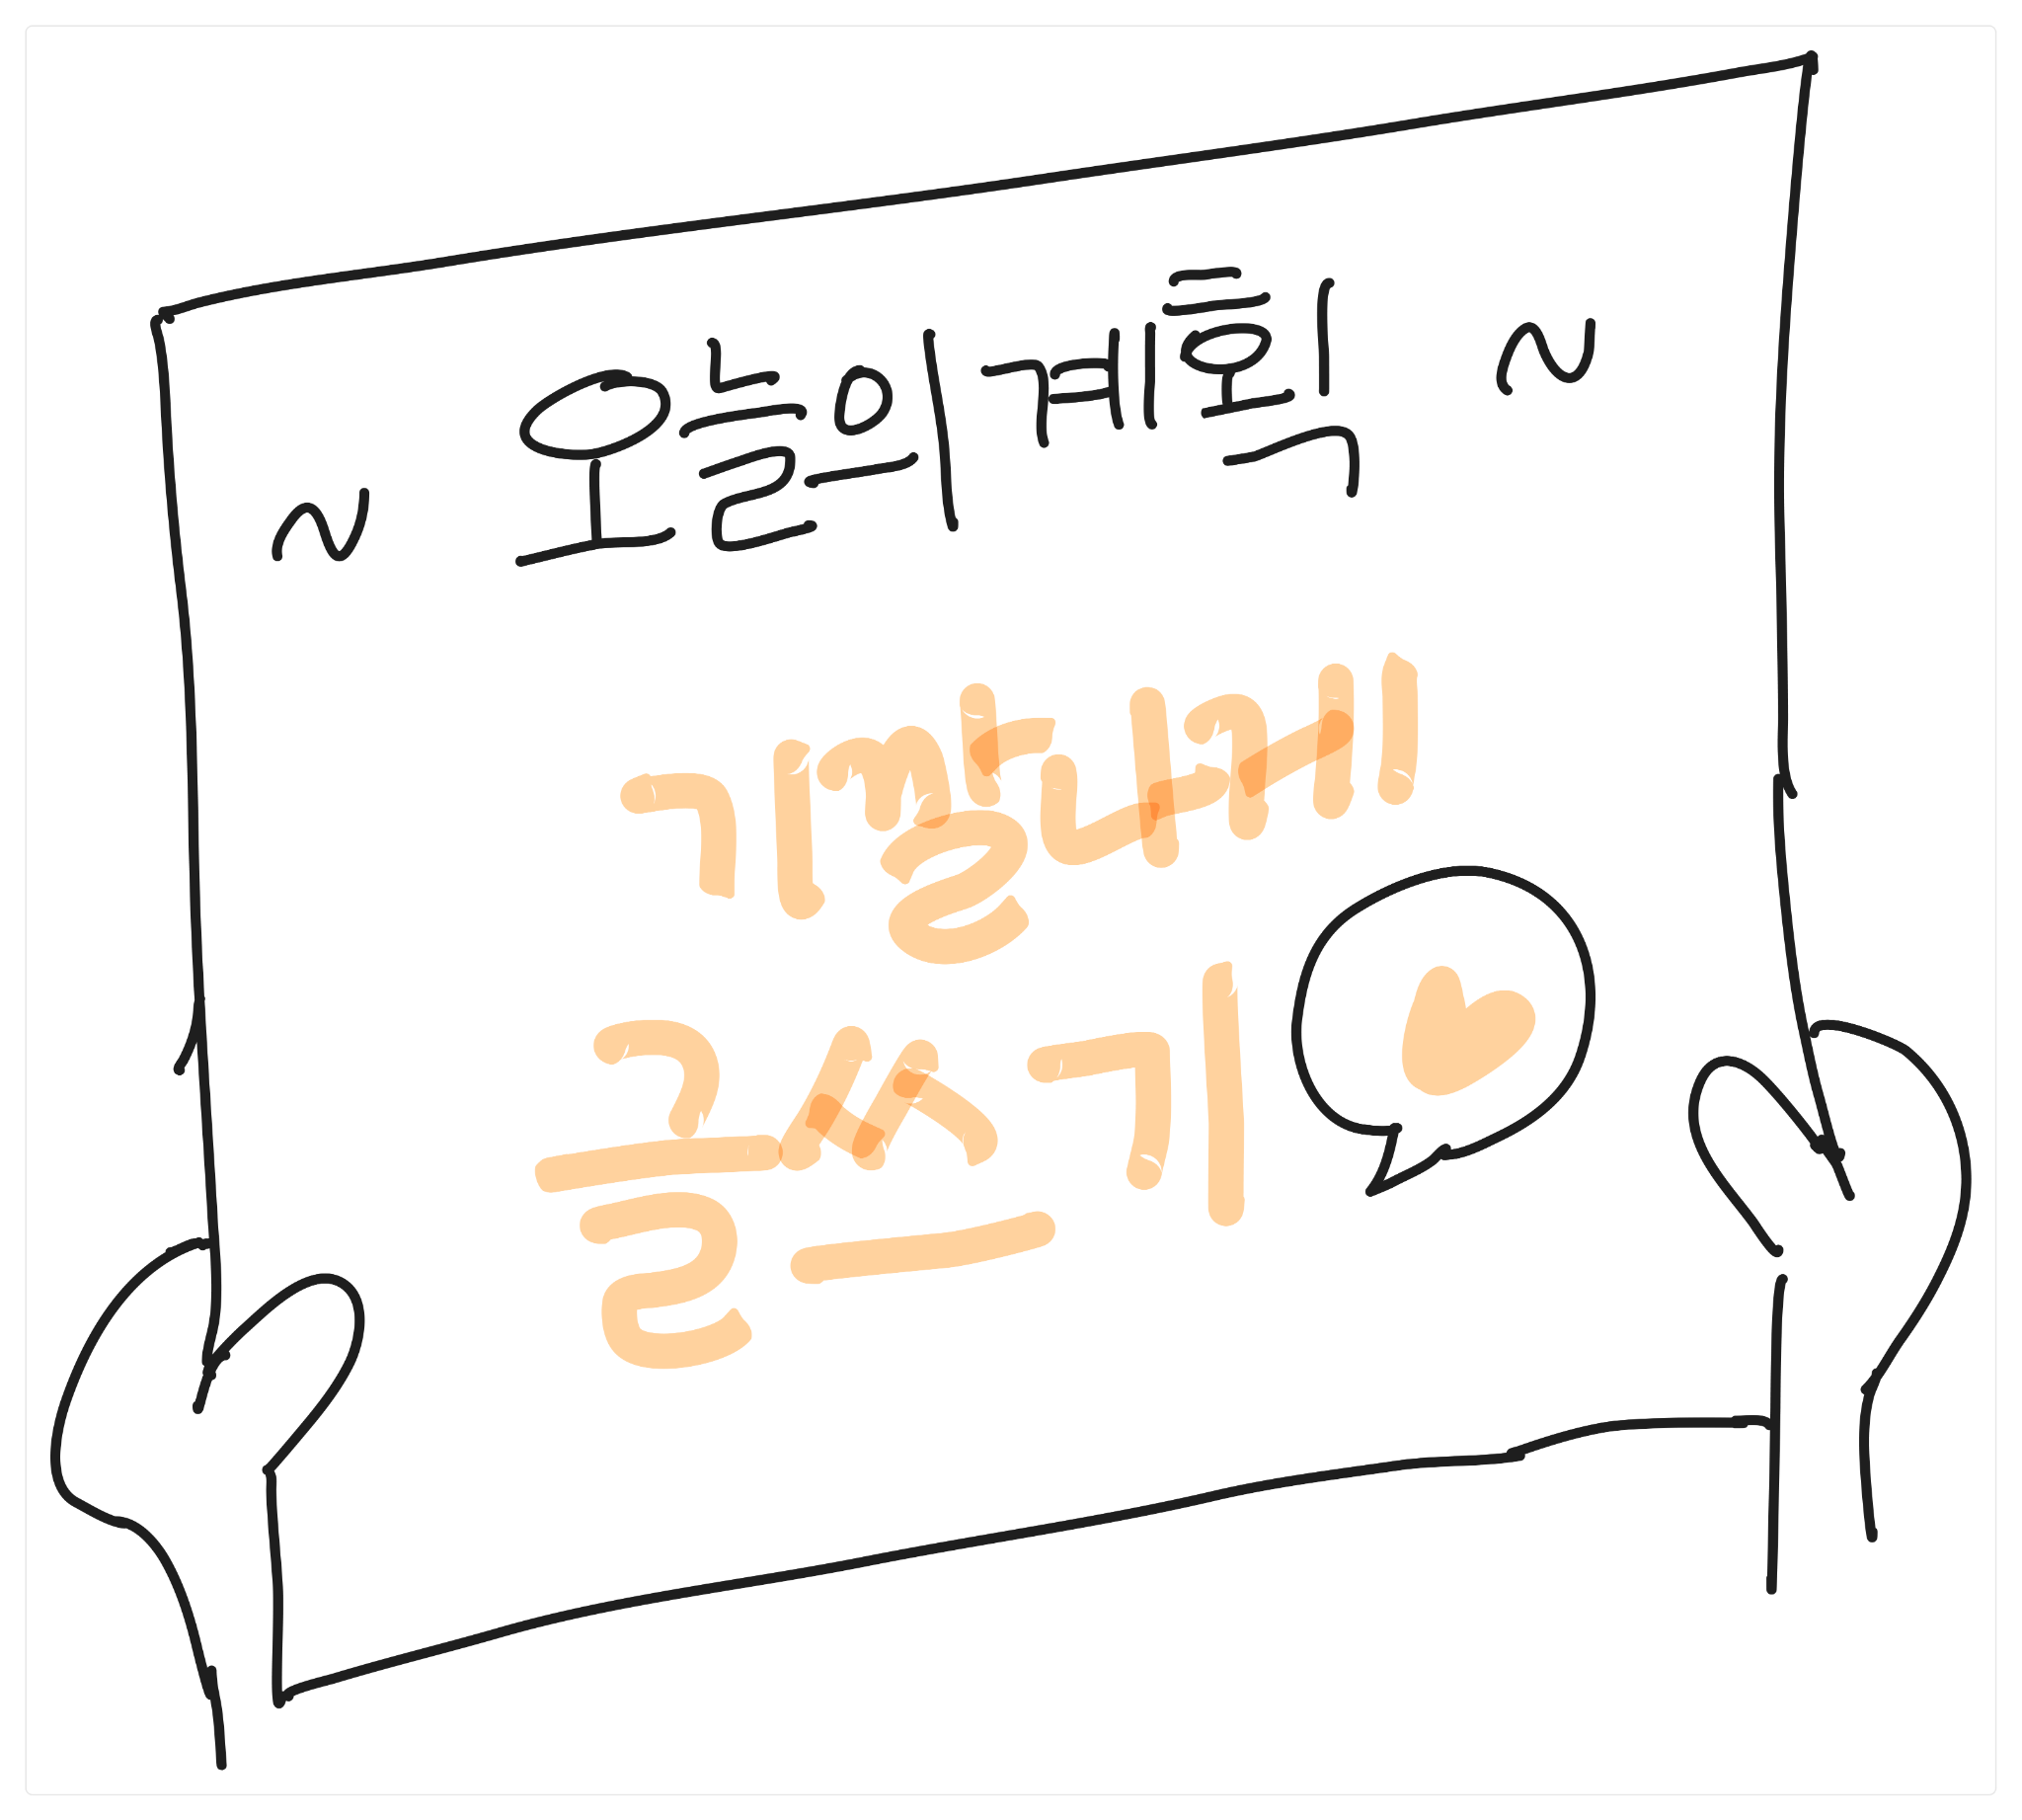 ~ 오늘의 계획 ~
기깔나게
글쓰기